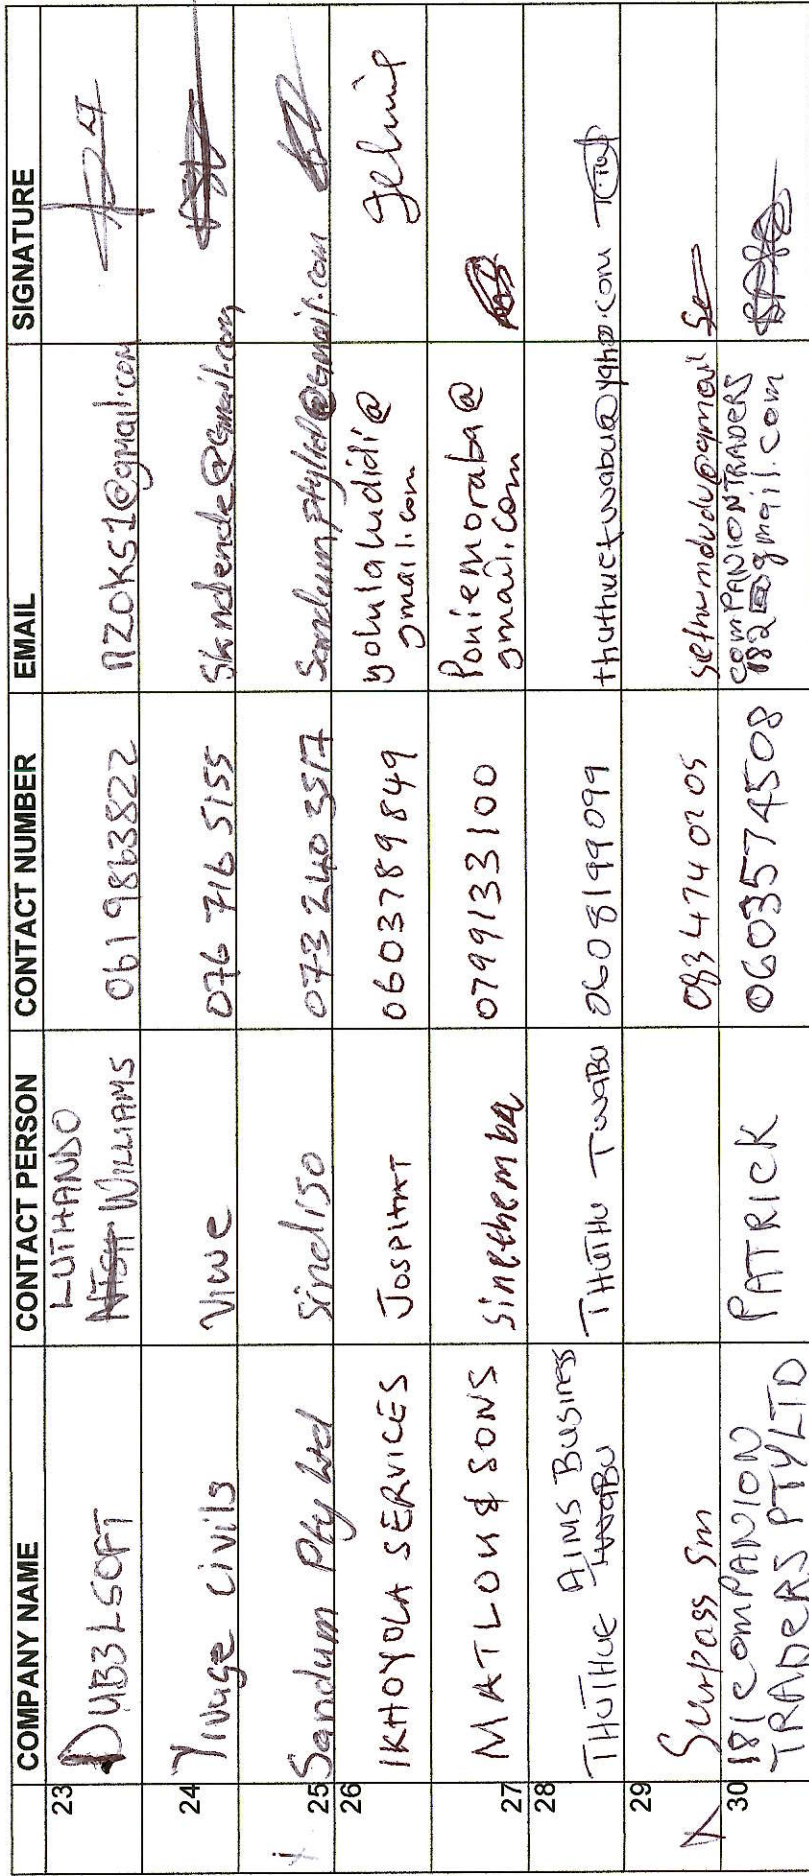 COMPANY NAME CONTACT PERSON CONTACT NUMBER EMAIL SIGNATURE
23 DUB3LSOFT LUTHANDO WILLIAMS 061 9863822 nzoks1@gmail.com
24 Yivuge civils Viwe 076 716 5155 Skndende@gmail.com
25 Sandum Pty Ltd Sindiso 073 240 3517 Sandumptyltd@gmail.com
26 IKHOYOLA SERVICES JOSPITMT 0603789849 yolulaludidi@
gmail.com
27 MATLOU & SONS Sinethemba 0799133100 Poniemoraba@
gmail.com
28 THUTHUE AIMS BUSINESS THUTHU TWABU 0608199099 thuthuetwabu@yahoo.com
29 Surpass Sm 083 474 0205 sethumdudu@gmail
30 181 COMPANION
TRADERS PTY LTD PATRICK 0603574508 COMPANIONTRADERS
182@gmail.com